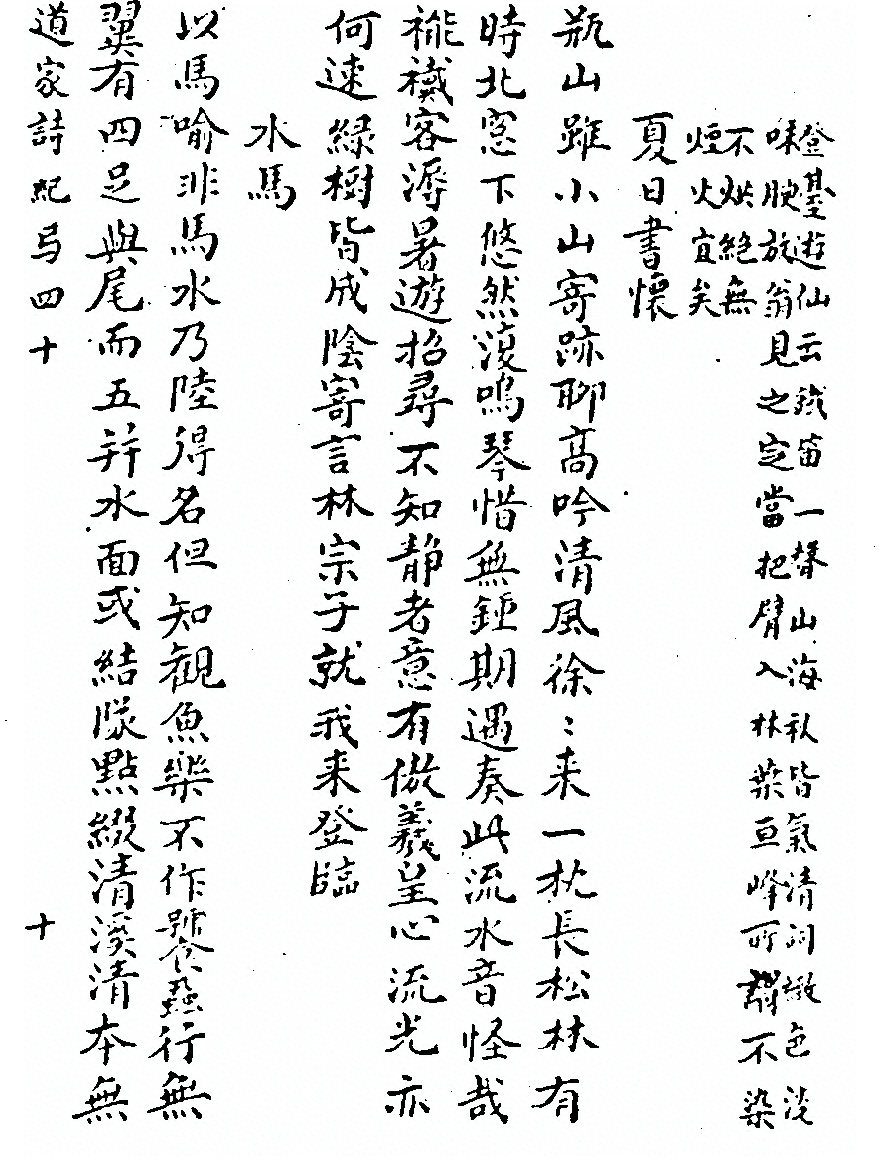 登臺遊仙云鐵笛一聲山海秋皆氣清詞緻色淡
味腴放翁見之定當把臂入林葉亘峰所謂不染
不烘絕無
煙火宜矣
夏日書懷
瓶山雖小山寄跡聊高吟清風徐〻来一枕長松林有
時北窓下悠然復鳴琴惜無鍾期遇奏此流水音怪哉
褦襶客溽暑遊招尋不知静者意有傲羲皇心流光亦
何速綠樹皆成陰寄言林宗子就我来登臨
水馬
以馬喻非馬水乃陸得名但知觀魚樂不作饕蝨行無
翼有四足與尾而五并水面或結隊點綴清溪清本無
道家詩紀弓四十 十